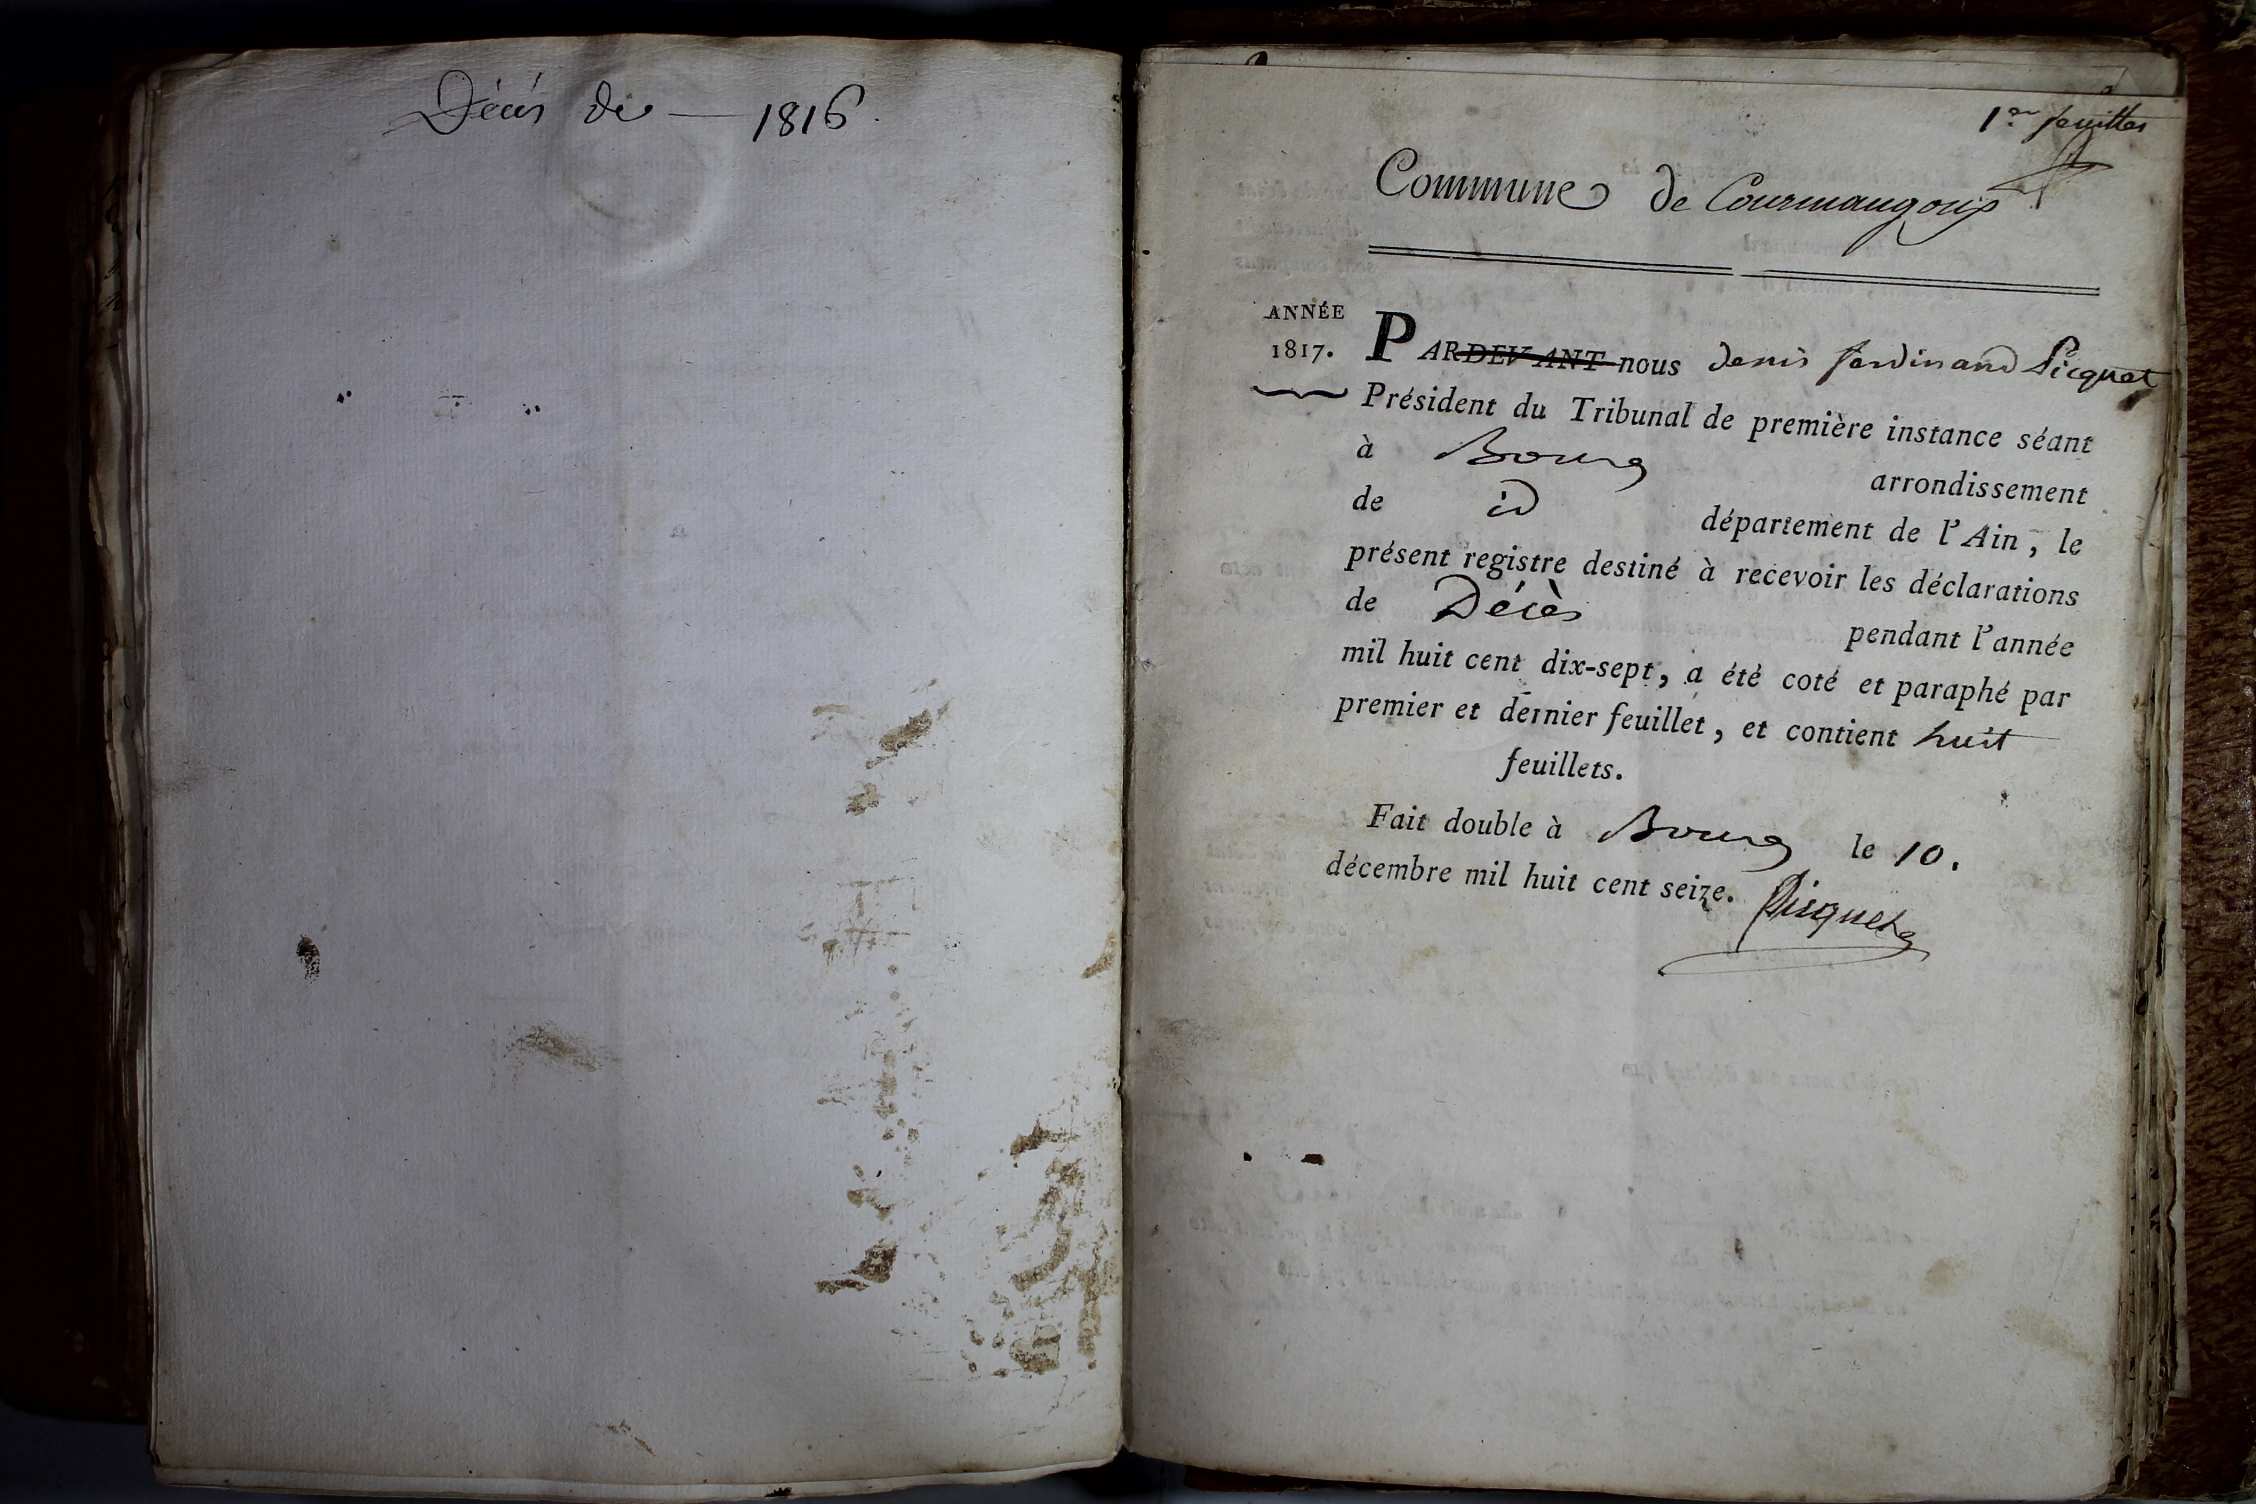 Décès de — 1816.
1er feuillet
Commune de Courmangoux
ANNÉE
1817.
PARDEVANT nous denis ferdinand Picquet
Président du Tribunal de première instance séant
à Bourg arrondissement
de id département de l'Ain, le
présent registre destiné à recevoir les déclarations
de Décès pendant l'année
mil huit cent dix-sept, a été coté et paraphé par
premier et dernier feuillet, et contient huit
feuillets.
Fait double à Bourg le 10.
décembre mil huit cent seize. Picquet